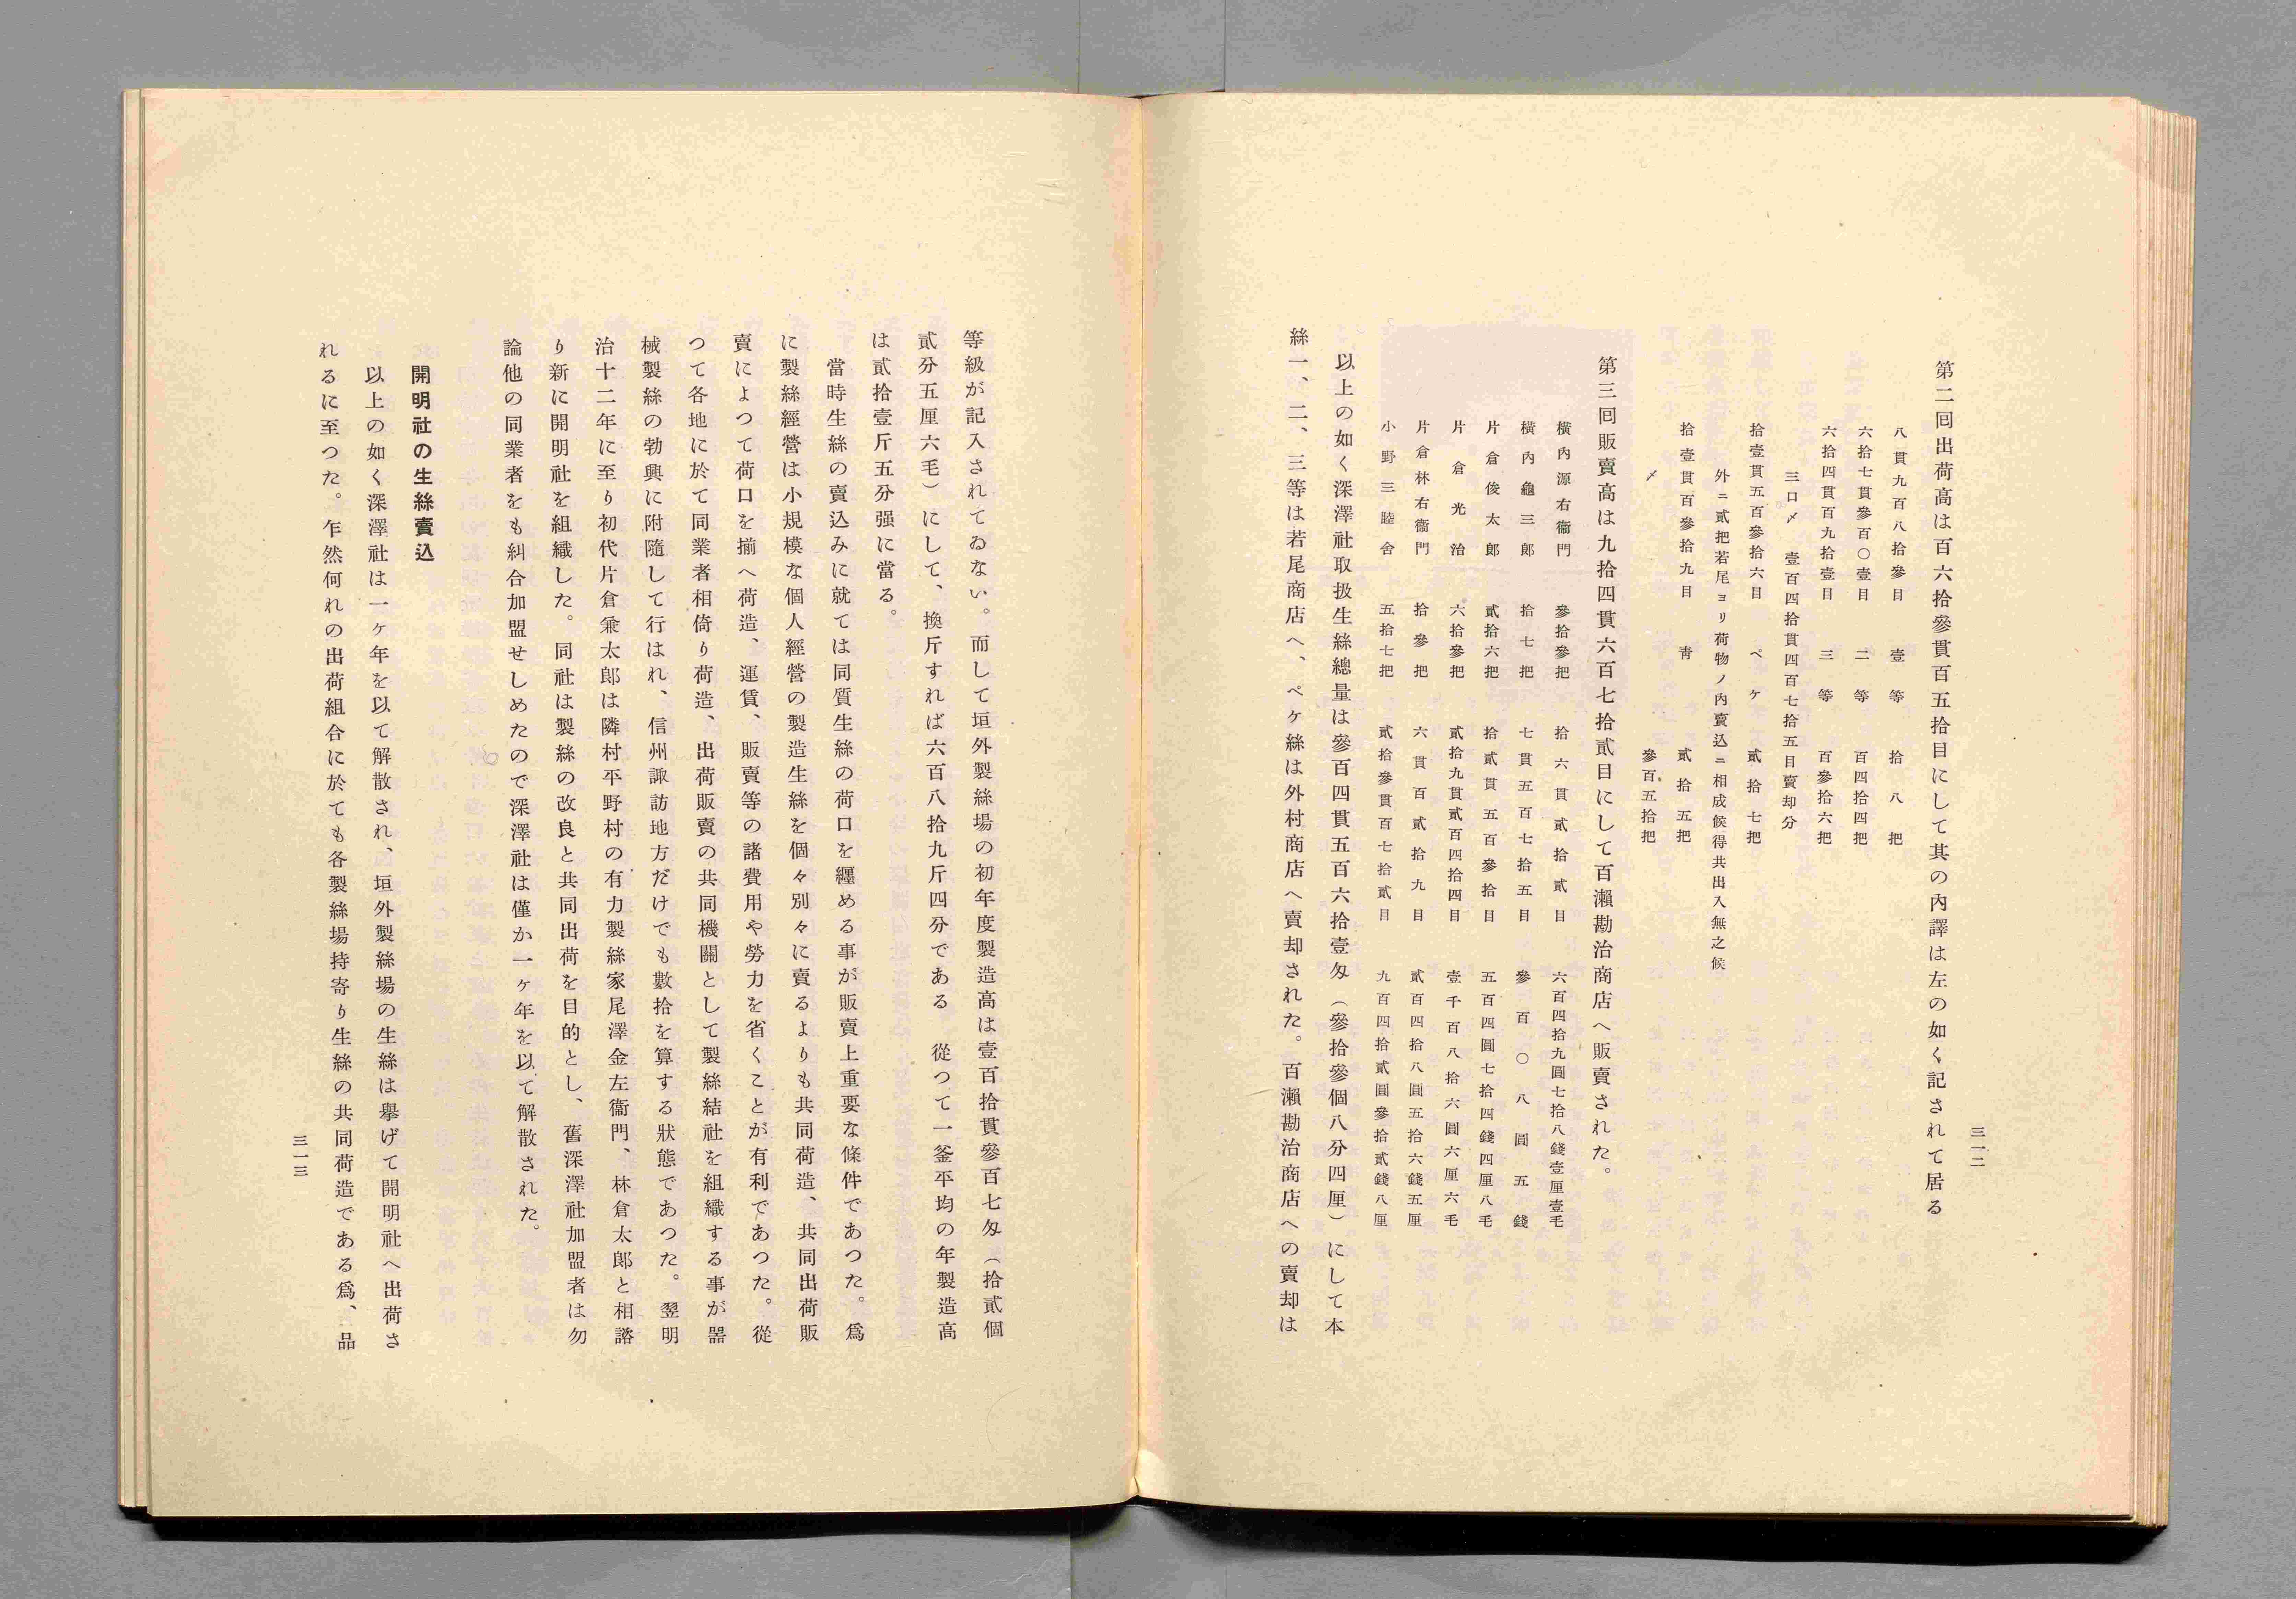 三一二
第二囘出荷高は百六拾參貫百五拾目にして其の內譯は左の如く記されて居る
八貫九百八拾參目　壹等　拾八把
六拾七貫參百〇壹目　二等　百四拾四把
六拾四貫百九拾壹目　三等　百參拾六把
三口〆　壹百四拾貫四百七拾五目賣却分
拾壹貫五百參拾六目　ペケ　貳拾七把
外ニ貳把若尾ヨリ荷物ノ內賣込ニ相成候得共出入無之候
拾壹貫百參拾九目　靑　貳拾五把
〆　參百五拾把
第三囘販賣高は九拾四貫六百七拾貳目にして百瀨勘治商店へ販賣された。
橫內源右衞門　參拾參把　拾六貫貳拾貳目　六百四拾九圓七拾八錢壹厘壹毛
橫內龜三郞　拾七把　七貫五百七拾五目　參百〇八圓五錢
片倉俊太郞　貳拾六把　拾貳貫五百參拾目　五百四圓七拾四錢四厘八毛
片倉光治　六拾參把　貳拾九貫貳百四拾四目　壹千百八拾六圓六厘六毛
片倉林右衞門　拾參把　六貫百貳拾九目　貳百四拾八圓五拾六錢五厘
小野三睦舍　五拾七把　貳拾參貫百七拾貳目　九百四拾貳圓參拾貳錢八厘
以上の如く深澤社取扱生絲總量は參百四貫五百六拾壹匁（參拾參個八分四厘）にして本
絲一、二、三等は若尾商店へ、ペケ絲は外村商店へ賣却された。百瀨勘治商店への賣却は
等級が記入されてゐない。而して垣外製絲場の初年度製造高は壹百拾貫參百七匁（拾貳個
貳分五厘六毛）にして、換斤すれば六百八拾九斤四分である　從つて一釜平均の年製造高
は貳拾壹斤五分强に當る。
當時生絲の賣込みに就ては同質生絲の荷口を纒める事が販賣上重要な條件であつた。爲
に製絲經營は小規模な個人經營の製造生絲を個々別々に賣るよりも共同荷造、共同出荷販
賣によつて荷口を揃へ荷造、運賃、販賣等の諸費用や勞力を省くことが有利であつた。從
つて各地に於て同業者相倚り荷造、出荷販賣の共同機關として製絲結社を組織する事が器
械製絲の勃興に附隨して行はれ、信州諏訪地方だけでも數拾を算する狀態であつた。翌明
治十二年に至り初代片倉兼太郞は隣村平野村の有力製絲家尾澤金左衞門、林倉太郞と相諮
り新に開明社を組織した。同社は製絲の改良と共同出荷を目的とし、舊深澤社加盟者は勿
論他の同業者をも糾合加盟せしめたので深澤社は僅か一ヶ年を以て解散された。
開明社の生絲賣込
以上の如く深澤社は一ヶ年を以て解散され、垣外製絲場の生絲は擧げて開明社へ出荷さ
れるに至つた。乍然何れの出荷組合に於ても各製絲場持寄り生絲の共同荷造である爲、品
三一三